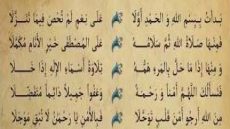 بَدَأْتُ بِبِسْمِ اللهِ وَ الْحَمْدِ أَوَّلًا عَلَى نِعَمٍ لَمْ تُحْصَ فِيمَا تَنَزَّلَا
فَمِنْهَا صَلَاةُ اللهِ ثُمَّ سَلَامُهُ عَلَى الْمُصْطَفَى خَيْرِ الْأَنَامِ مُكَمَّلَا
وَ مِنْهَا إِذَا مَا حَلَّ بِالْمَرْءِ هَمُّهُ تِلَاوَةُ أَسْمَاءِ الْإِلَهِ إِذَا خَلَا
فَنَسْأَلُكَ اللَّهُمَّ أَمْنًا وَ رَحْمَةً وَعَفْوًا جَمِيلًا دَائِمًا مُتَفَضِّلَا
مِنَ اللهِ أَرْجُو أَمْنَ قَلْبٍ فَبِالْأَمْنِ يَا رَحْمَنُ لَا تُبْقِ